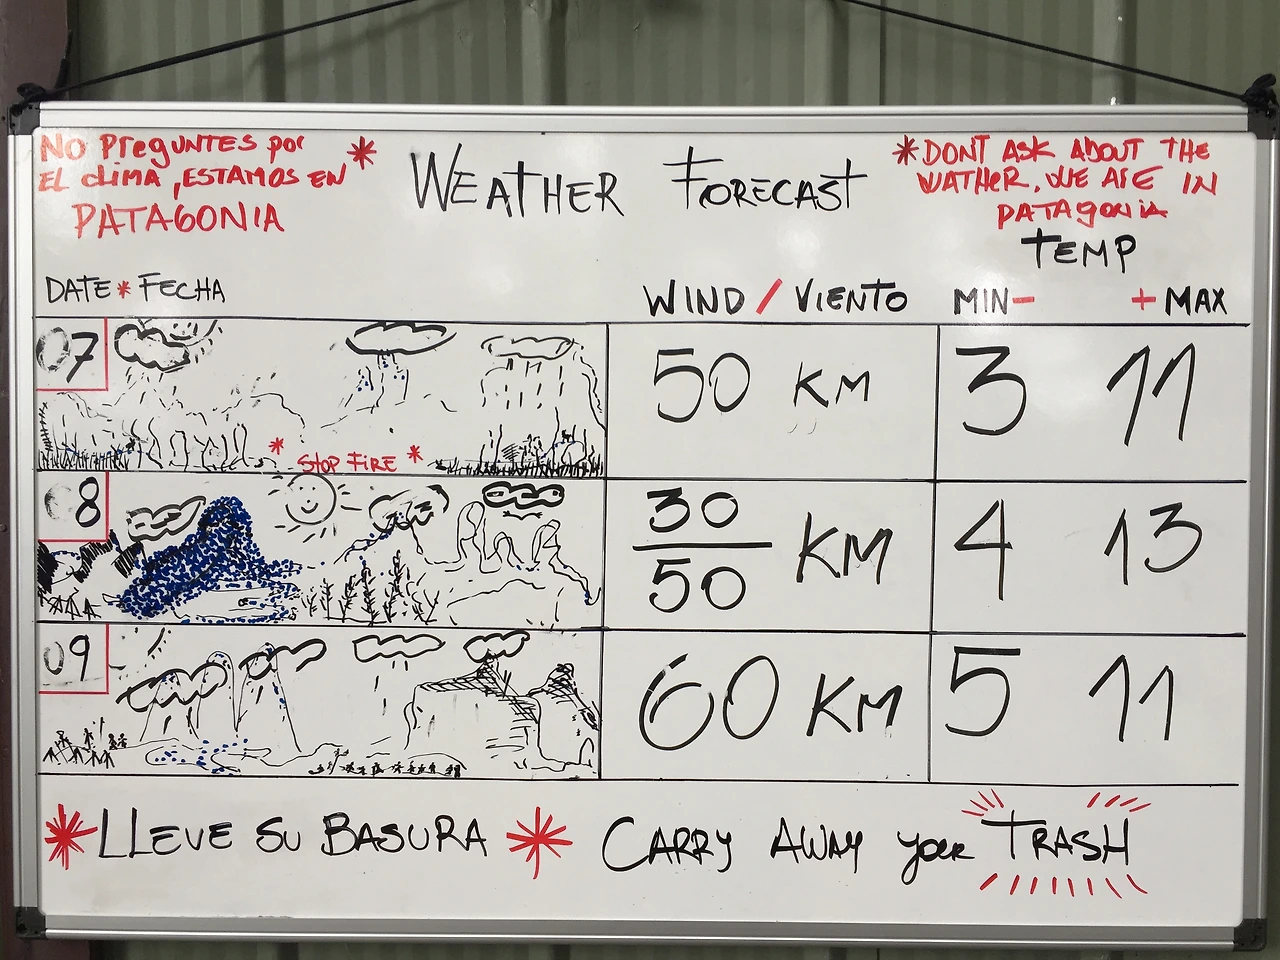 NO PREGUNTES POR
EL CLIMA, ESTAMOS EN *
PATAGONIA
WEATHER FORECAST
*DONT ASK ABOUT THE
WATHER, WE ARE IN
PATAGONIA
TEMP
DATE * FECHA
WIND / VIENTO
MIN-
+ MAX
07
* STOP FIRE *
50 KM
3
11
08
30
50 KM
4
13
09
60 KM
5
11
*LLEVE SU BASURA *
CARRY AWAY your TRASH